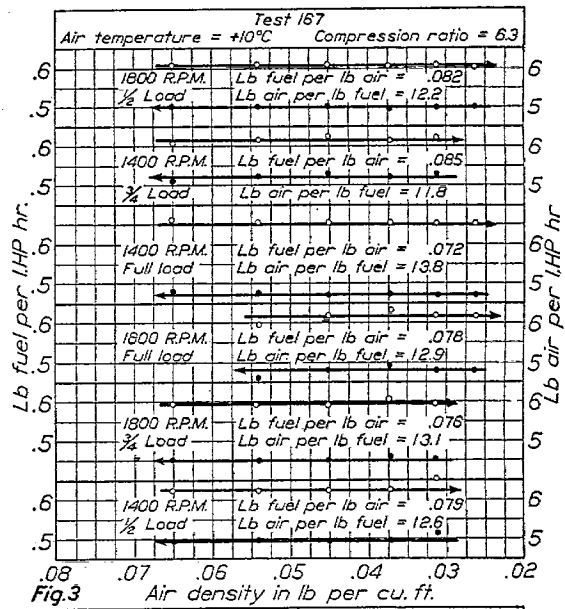 Test 167
Air temperature = +10°C Compression ratio = 6.3
.6 6
1800 R.P.M. Lb fuel per lb air = .082
1/2 Load Lb air per lb fuel = 12.2
.5 5
.6 6
1400 R.P.M. Lb fuel per lb air = .085
.5 5
3/4 Load Lb air per lb fuel = 11.8
.6 6
1400 R.P.M. Lb fuel per lb air = .072
Full load Lb air per lb fuel = 13.8
.5 5
.6 6
1800 R.P.M. Lb fuel per lb air = .078
Full load Lb air per lb fuel = 12.9
.5 5
.6 6
1800 R.P.M. Lb fuel per lb air = .076
3/4 Load Lb air per lb fuel = 13.1
.5 5
.6 6
1400 R.P.M. Lb fuel per lb air = .079
1/2 Load Lb air per lb fuel = 12.6
.5 5
Lb fuel per I.HP hr.
Lb air per I.HP hr
.08 .07 .06 .05 .04 .03 .02
Fig.3 Air density in lb per cu. ft.